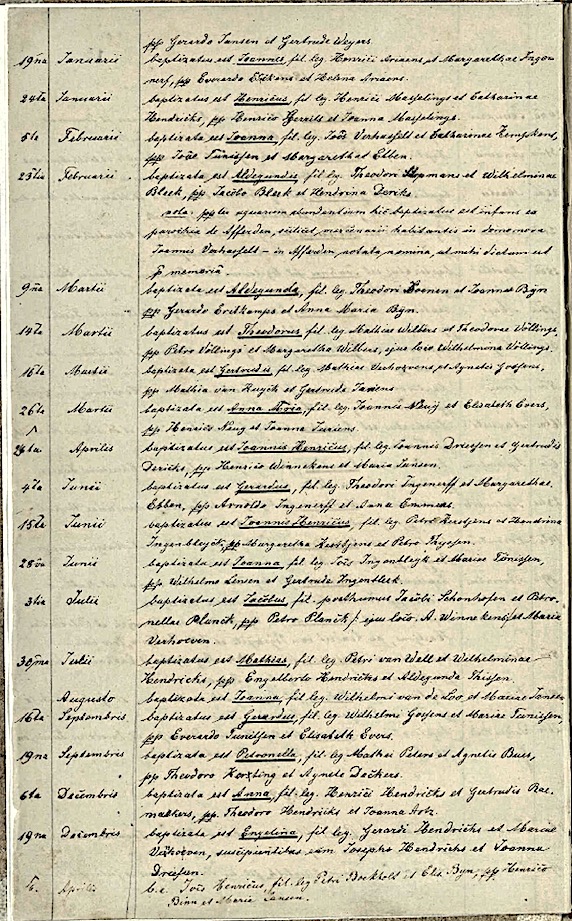 pp Gerardo Jansen et Gertrude Weyers.
19na Januarii baptizatus est Joannes, fil. leg. Henrici Ariaens, et Margarethae Ingen-
nerf, pp Everardo Ebbens et Helena Ariaens.
24ta Januarii baptizatus est Henricus, fil. leg. Henrici Masselings et Catharinae
Hendricks, pp Henrico Gerrits et Joanna Masselings.
5ta Februarii baptizata est Joanna, fil. leg. Joôs Verhasselt et Catharinae Kempkens,
pp Joôe Tunissen et Margaretha Ebben.
23tia Februarii baptizata est Aldegundis, fil. leg. Theodori et Wilhelminae
Bleek, pp. Jacobo Bleek et Hendrina Deriks.
nota. pp. aquarum abundantium hic baptizatus est infans ex
parochia de Afferden, scilicet, mercenarii habitantis in domo nova
Joannis Verhasselt - in Afferden, notata nomina, ut mihi dictum est
p memoria.
9na Martii baptizata est Aldegunda, fil. leg. Theodori Koenen et Joannae Bijn
pp Gerardo Erckamps et Anna Maria Bijn.
14ta Martii baptizatus est Theodorus, fil. leg. Mathiae Wilbers et Theodorae Völlings,
pp Petro Völlings et Margaretha Wilbers, ejus loco Wilhelmina Völlings.
15ta Martii baptizata est Gertrudis, fil. leg. Mathiae Verhoevens, et Agnetis Goossens,
pp Mathia van Kuyck et Gertrude Jansens.
26ta Martii baptizata est Anna Maria, fil. leg. Joannis Neuij et Elisabeth Evers,
pp Henrico Neug et Joanna Jansens.
24ta Aprilis baptizatus est Joannis Henricus, fil. leg. Joannis Driessen et Gertrudis
Dericks, pp Henrico Winnekens et Maria Jansen.
4ta Junii baptizatus est Gerardus, fil. leg. Theodori Ingenerff et Margarethae
Ebben, pp Arnoldo Ingenerff et Anna Emmens.
15ta Junii baptizatus est Joannis Henricus, fil. leg. Petri Kerstjens et Hendrina
Ingenbleyck, pp Margaretha Kerstjens et Petro Thyssen.
28va Junii baptizata est Joanna fil. leg. Joôs Ingenbleyk et Mariae Tönissen,
pp. Wilhelmo Lensen et Gertrude Ingenbleek.
3tia Julii baptizatus est Jacobus, fil. posthumus Jacobi Schonhofen et Petro-
nellae Planck, pp Petro Planck / ejus loco A. Winnekens / et Maria
Verhoeven.
30ma Julii baptizatus est Mathias, fil. leg. Petri van Well et Wilhelminae
Hendricks, pp Engelberto Hendricks et Aldegunda Thissen.
Augusto baptizata est Joanna, fil. leg. Wilhelmi van de Loo, et Mariae Jansen
16ta Septembris baptizatus est Gerardus, fil. leg. Wilhelmi Gossens et Mariae Tunissen,
pp Everardo Tunissen et Elisabeth Evers.
19na Septembris baptizata est Petronella, fil. leg. Mathei Peters et Agnetis Buers,
pp Theodoro et Agnete Deckers.
6ta Decembris baptizata est Anna, fil. leg. Henrici Hendricks et Gertrudis Rae-
maekers, pp. Theodoro Hendricks et Joanna
19na Decembris baptizata est Engelina, fil. leg. Gerardi Hendricks et Mariae
Verhoeven, suscipientibus eam Josepho Hendricks et Joanna
Driesen.
Aprilis b. e. Joôs Henricus, fil. leg. Petri Bockholt et Elis. Byn, pp Henrico
Binn et Maria Jansen.